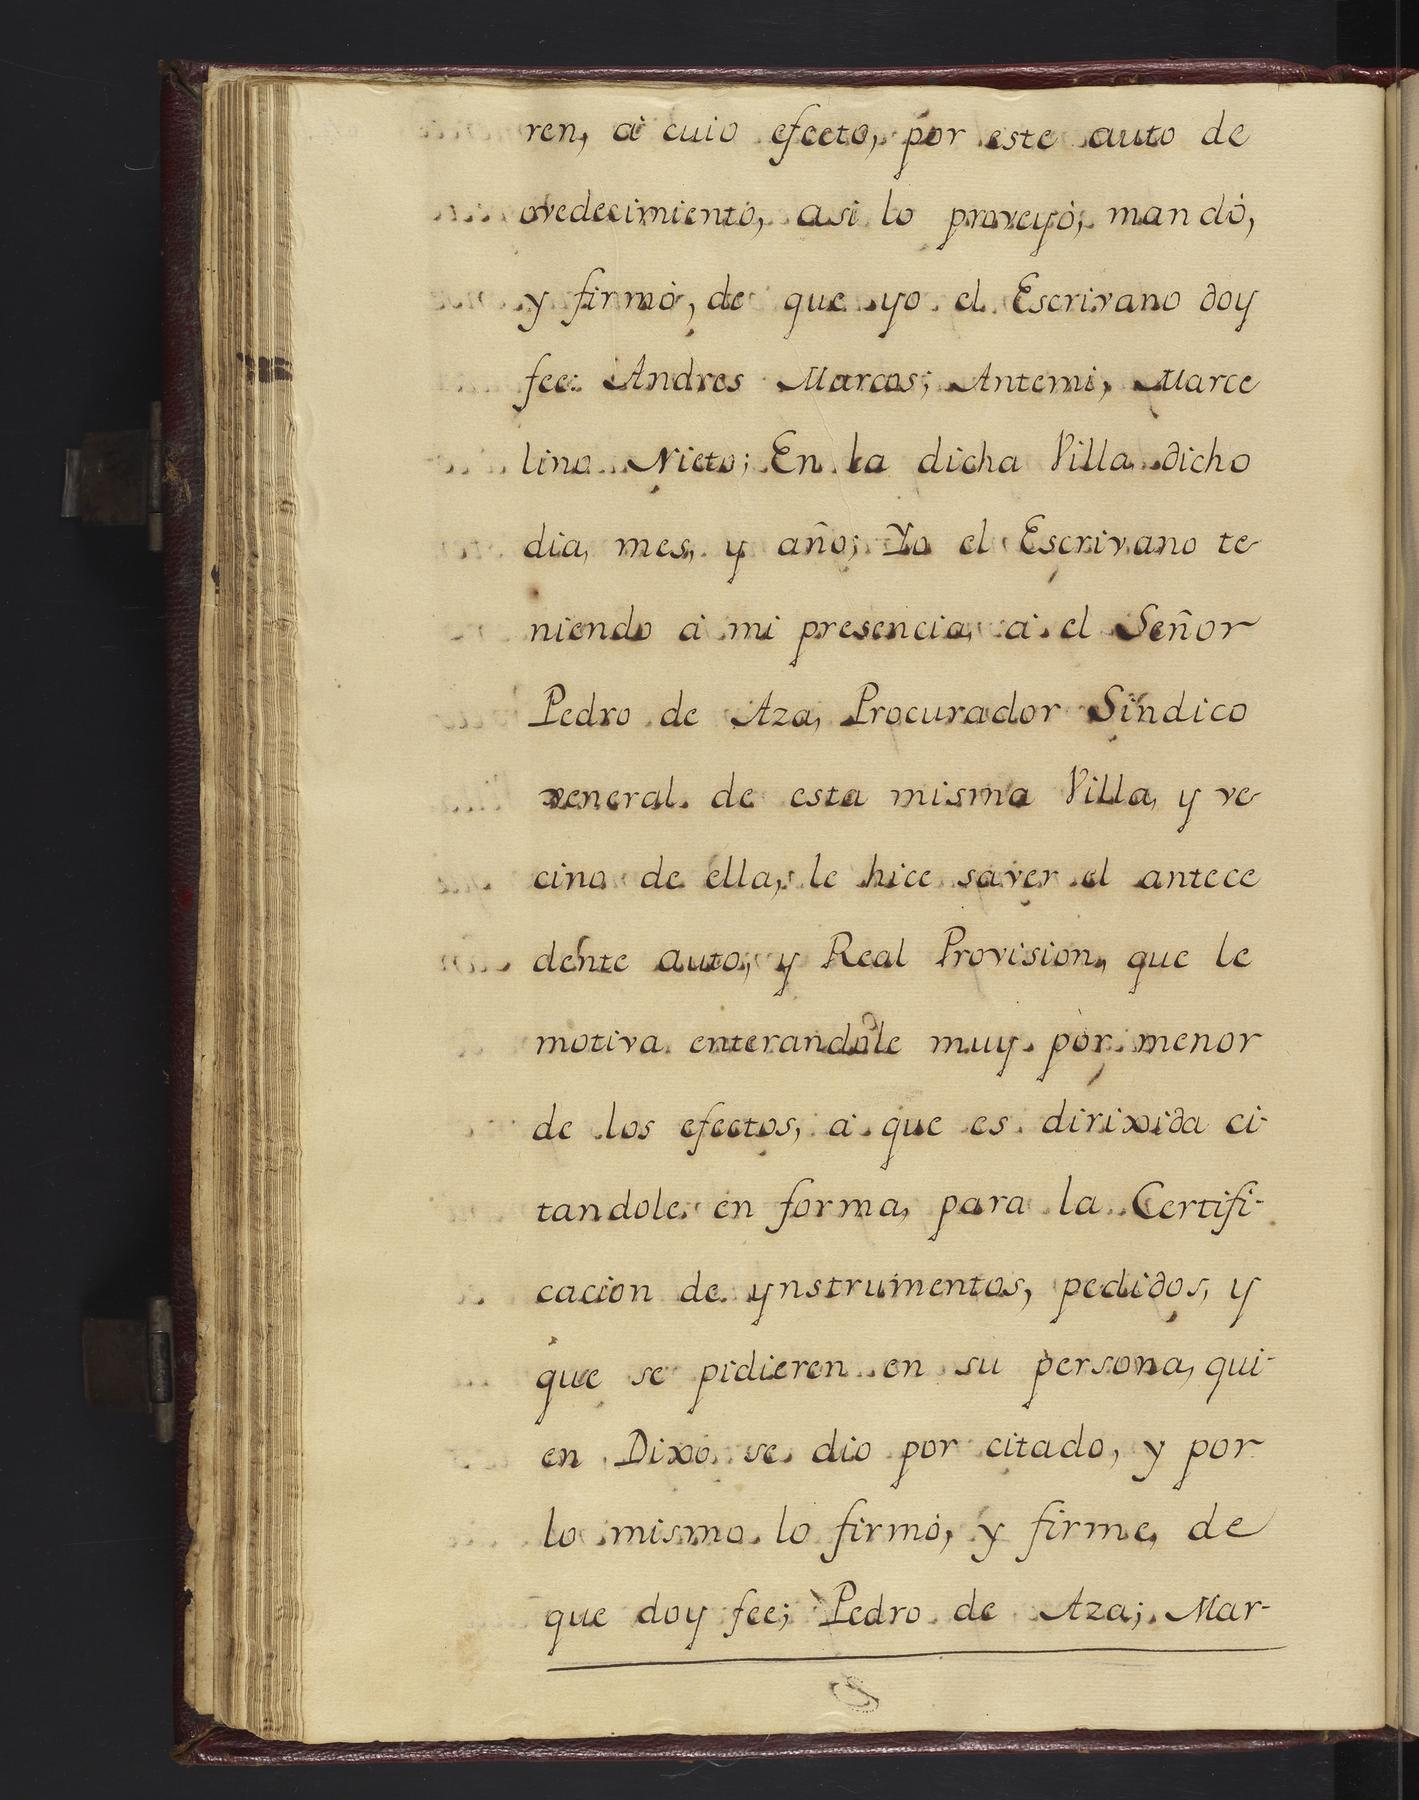 ren, â cuio efecto, por este auto de
ovedecimiento, asi lo proveyó, mandó,
y firmó, de que yo el Escrivano doy
fee: Andres Marcos; Antemi, Marce
lino Nieto; En la dicha Villa dicho
dia, mes, y año; Yo el Escrivano te
niendo à mi presencia, à el Señor
Pedro de Aza, Procurador Sindico
xeneral de esta misma Villa, y ve
cino de ella, le hice saver el antece
dente auto, y Real Provision, que le
motiva enterandole muy por menor
de los efectos, à que es dirixida ci-
tandole en forma, para la Certifi-
cacion de ynstrumentos, pedidos, y
que se pidieren en su persona, qui-
en Dixo se dio por citado, y por
lo mismo lo firmó, y firme, de
que doy fee; Pedro de Aza; Mar-